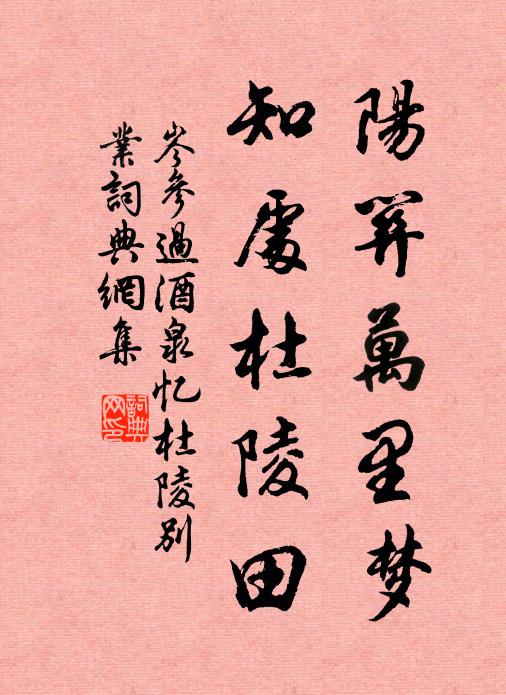 陽關萬里梦
知處杜陵田
岑參過酒泉忆杜陵别
業詞典網集
詞典網印